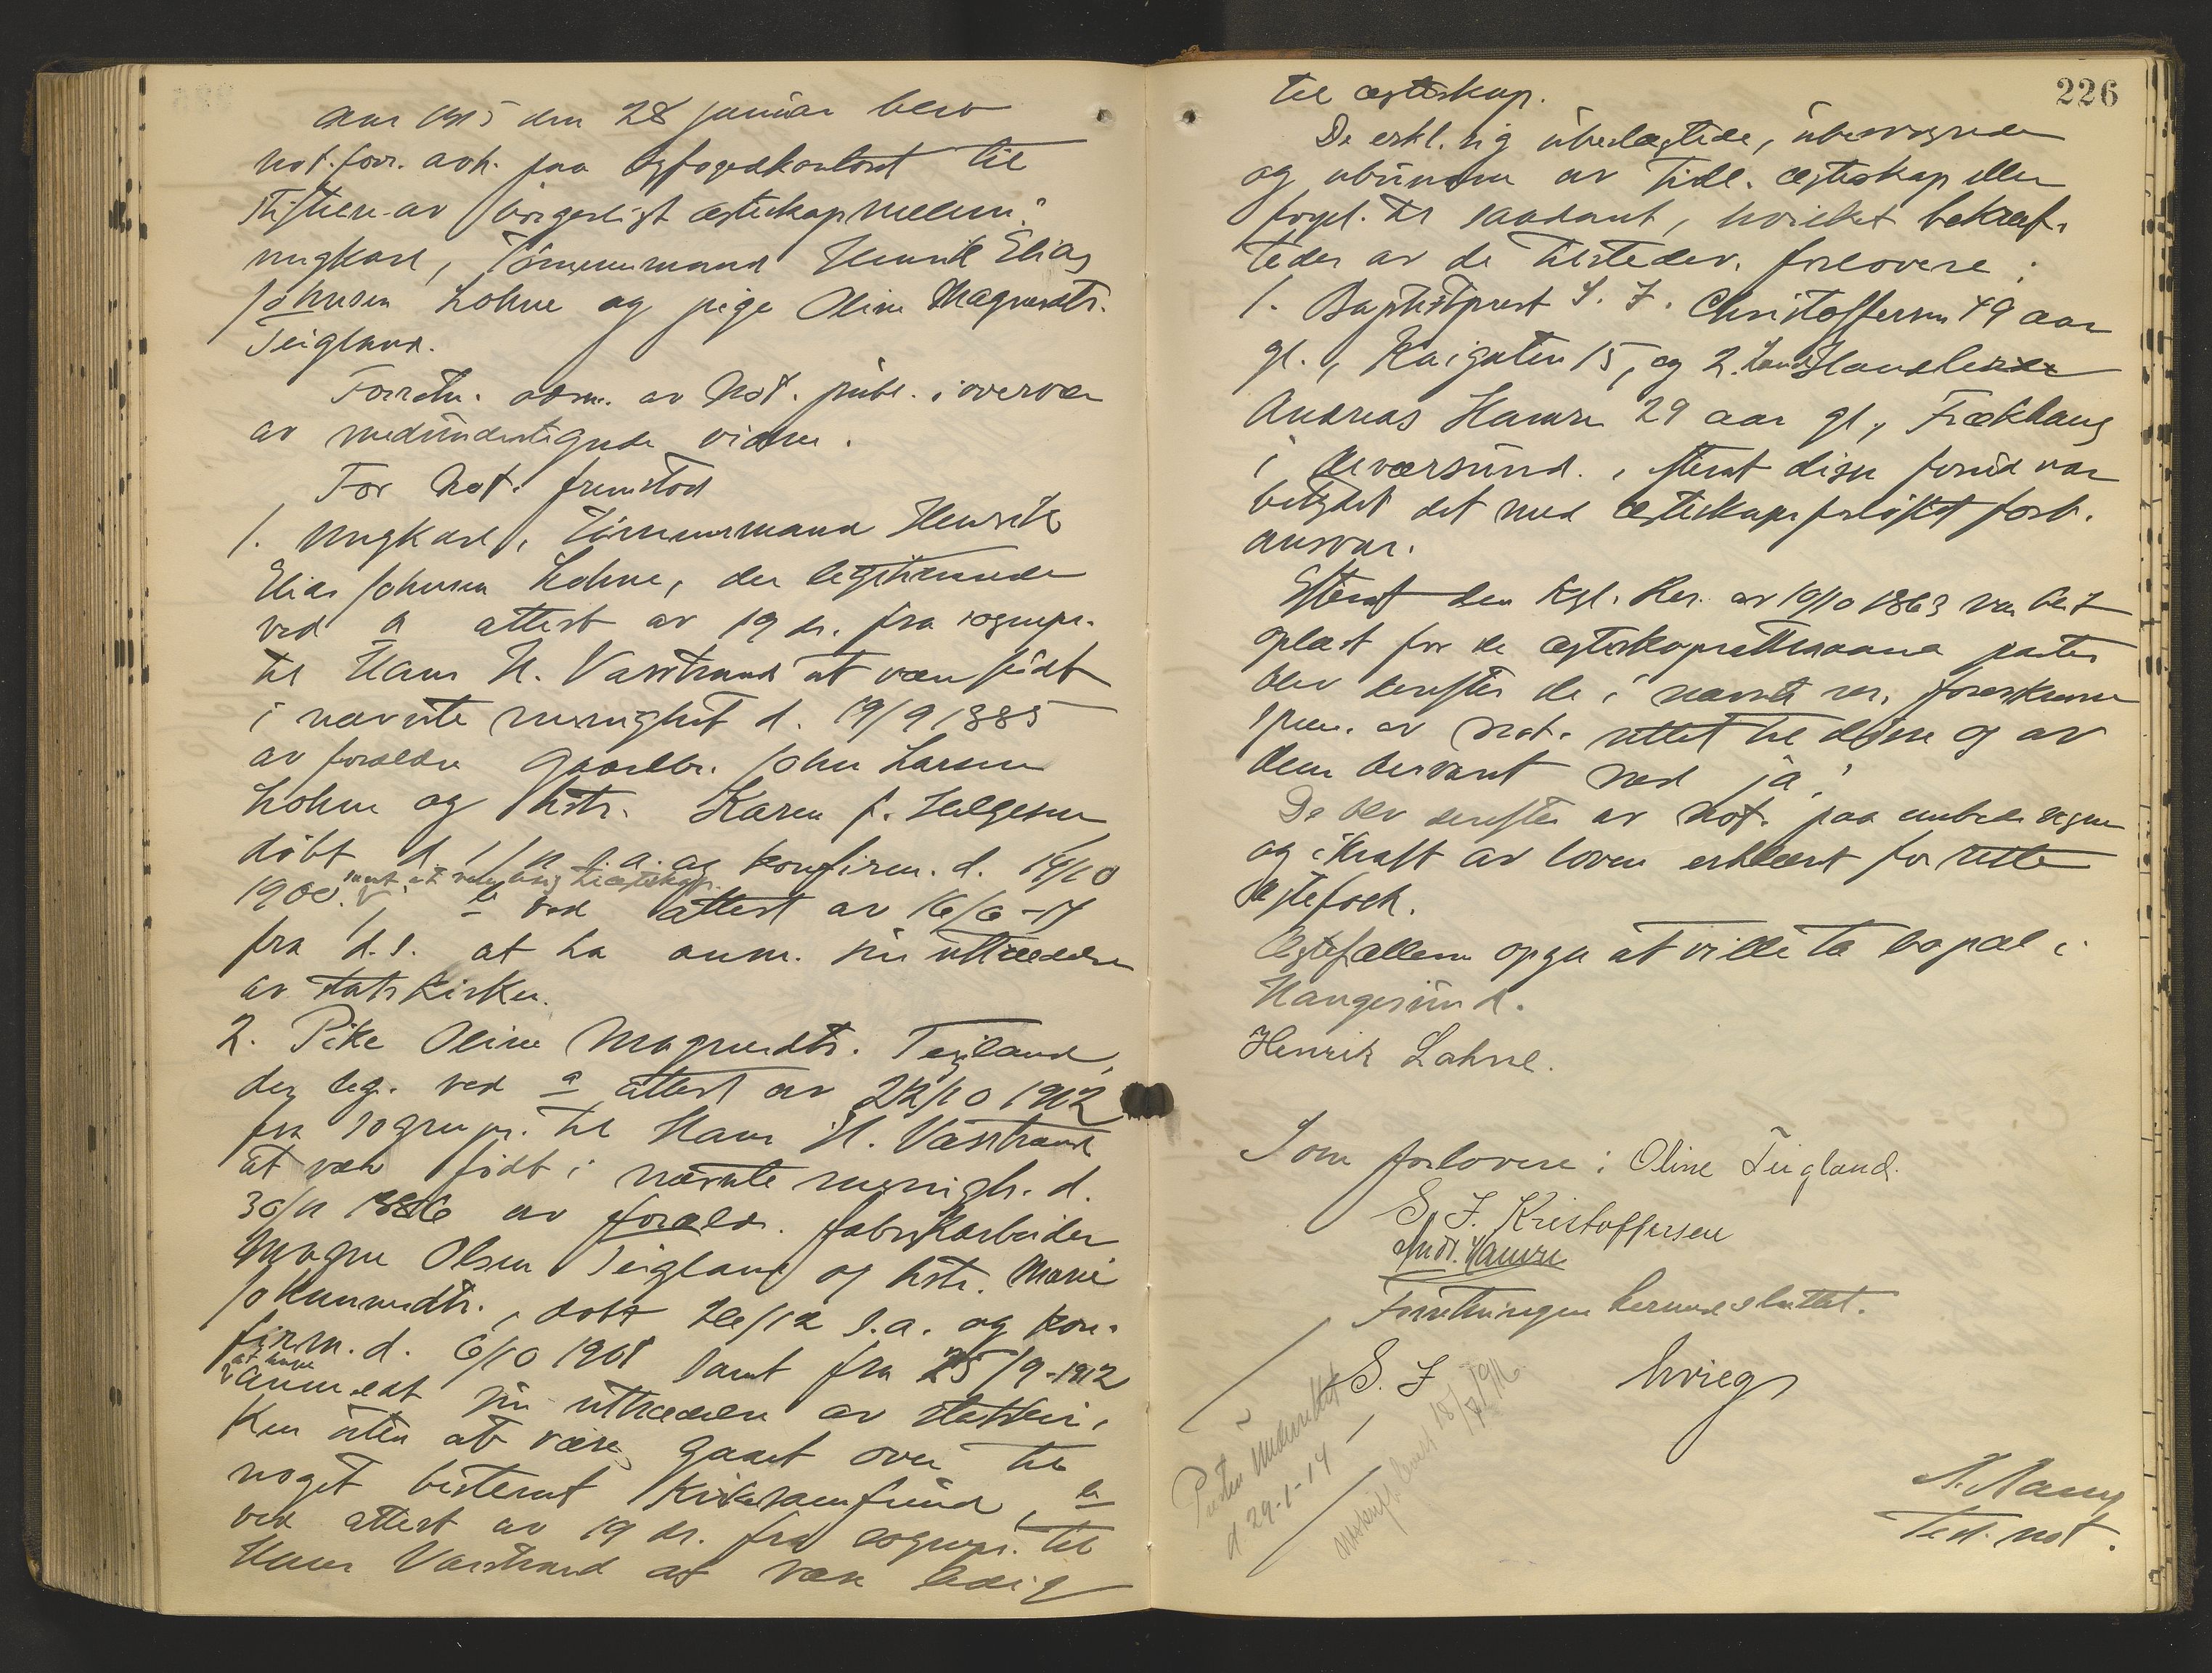 Aar 1915 den 28 januar blev
not. forr. avh. paa byfogedkontoret til
stiftelse av borgerligt egteskap mellem:
ungkarl, Tømmermand Henrik Elias
Johnsen Lohne og pige Oline Magnesdtr.
Teigland.
Forretn. adm. av Not. publ. i overvær
av medundertegnede vidne.
For Not. fremstod
1. Ungkarl, Tømmermand Henrik
Elias Johnsen Lohne, der legitimerede
ved a attest av 19 ds. fra sognepr.
til Hans H. Vasstrand at være født
i nævnte menighet d. 19/9 1885
av forældre Gaardbr. John Larsen
Lohne og hstr. Karen f. Helgesen,
døbt d. 1/11 s.a. og konfirm. d. 14/10
1900. samt at være ledig til egteskap.
b ved attest av 16/6 - 14
fra d.s. at ha anm. sin uttrædelse
av statskirken.
2. Pike Oline Magnesdtr. Teigland,
der leg. ved a attest av 22/10 1912
fra sognepr. til Hans H. Vasstrand
at være født i nævnte menigh. d.
30/11 1886 av foreldr. fabrikarbeider
Magne Olsen Teigland og hstr. Marie
Johannesdtr., døbt 26/12 s.a. og kon-
firm. d. 6/10 1901 samt fra 25/9-1912
at have
anmeldt sin uttrædelse av statskir-
ken uten at være gaaet over til
noget bestemt kirkesamfund, b
ved attest av 19 ds. fra sognepr. til
Hans Vasstrand at være ledig
226
til egteskap.
De erkl. sig ubeslegtede, ubesvogrede
og ubundne av tidl. egteskap eller
forpl. til saadant, hvilket bekræf-
tedes av de tilstedev. forlovere:
1. Baptistprest S. F. Christoffersen 49 aar
gl., Kaigaten 15, og 2. Handlende
Andreas Hamre 29 aar gl., Frækhaug
i Alversund., efterat disse forud var
betydet det med egteskapsforløftet forb.
ansvar.
Efterat den Kgl. Res. av 10/10 1863 var blit
oplæst for de egteskapsattraaende parter
blev derefter de i nævnte res. foreskrevne
spm. av not. rettet til disse og av
dem besvaret med ja!
De blev derefter av Not. paa embeds vegne
og i kraft av loven erklært for rette
egtefolk.
Egtefællerne opga at ville ta bopæl i
Haugesund.
Henrik Lohne.
Som forlovere: Oline Teigland.
S. F. Kristoffersen
Andr. Hamre
Forretningen hermed sluttet.
S. F
hvieg
Presten underrettet
d 29-1-14
Utskrift 18/7 1916
Test. not.